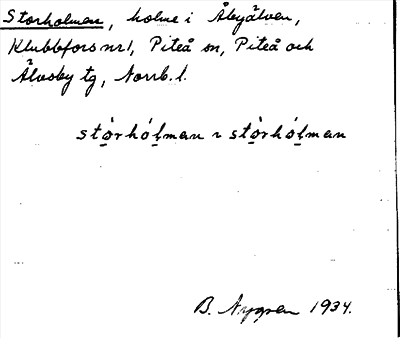 Storholmen, holme i Åbyälven,
Klubbfors nr 1, Piteå sn, Piteå och
Älvsby tg, Norrb. l.
stὸ̱rhόḷman ~ stὸ̱rhό̱ḷman
B. Nygren 1934.